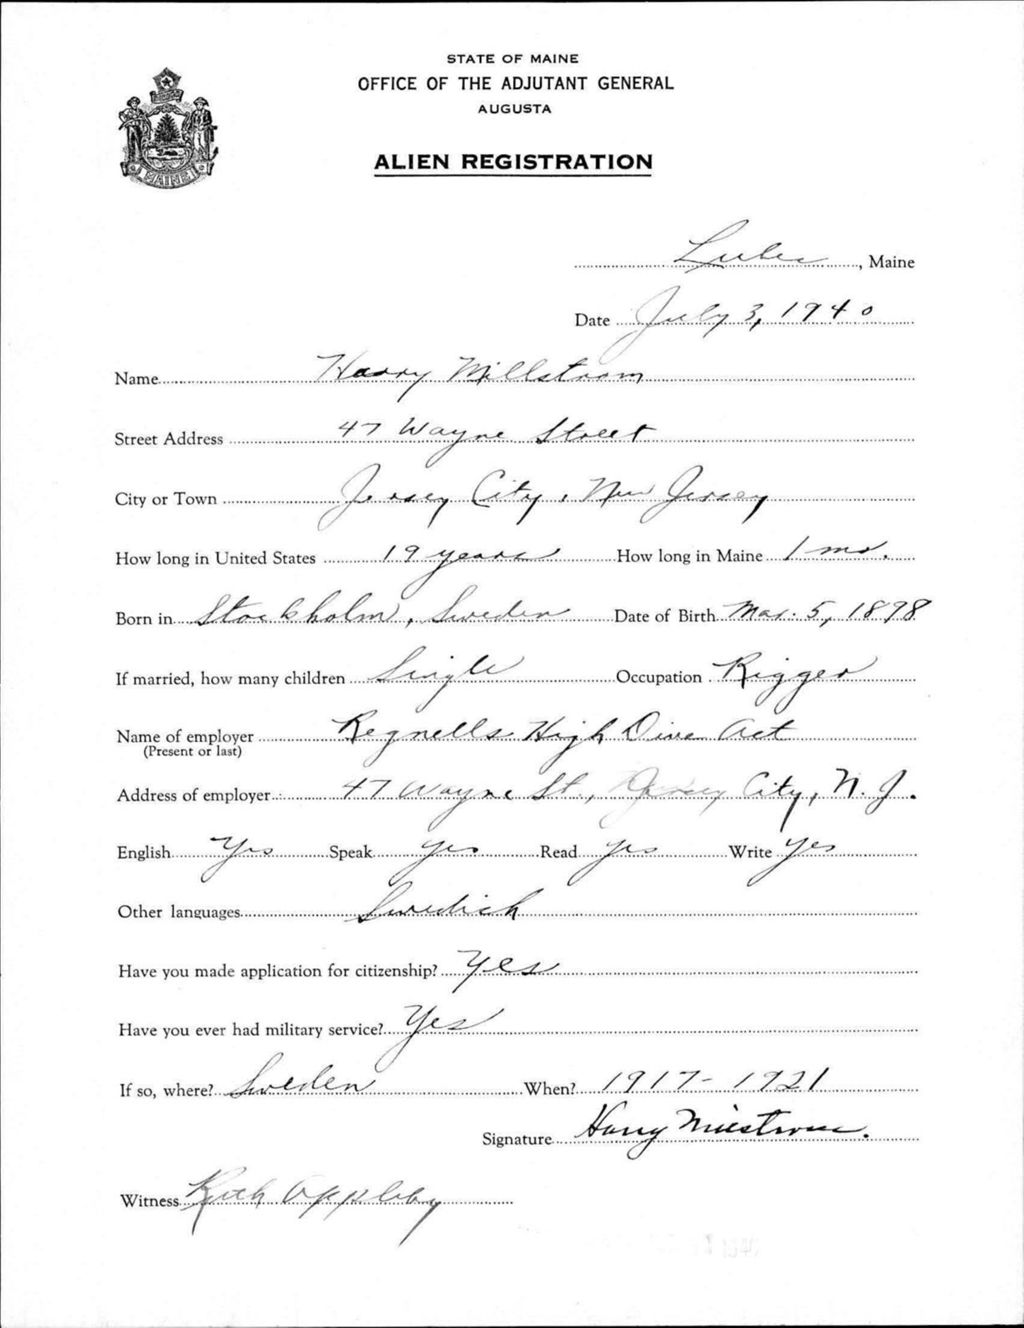 STATE OF MAINE
OFFICE OF THE ADJUTANT GENERAL
AUGUSTA
ALIEN REGISTRATION
MAINE
Lubec, Maine
Date July 3, 1940
Name Harry Millstrom
Street Address 47 Wayne Street
City or Town Jersey City, New Jersey
How long in United States 19 years How long in Maine 1 mo.
Born in Stockholm, Sweden Date of Birth Mar. 5, 1898
If married, how many children Single Occupation Rigger
Name of employer Regnells High Dive Act
(Present or last)
Address of employer 47 Wayne St., Jersey City, N. J.
English Yes Speak yes Read yes Write yes
Other languages Swedish
Have you made application for citizenship? Yes
Have you ever had military service? Yes
If so, where? Sweden When? 1917-1921
Signature Harry Millstrom.
Witness Ruth Appleby